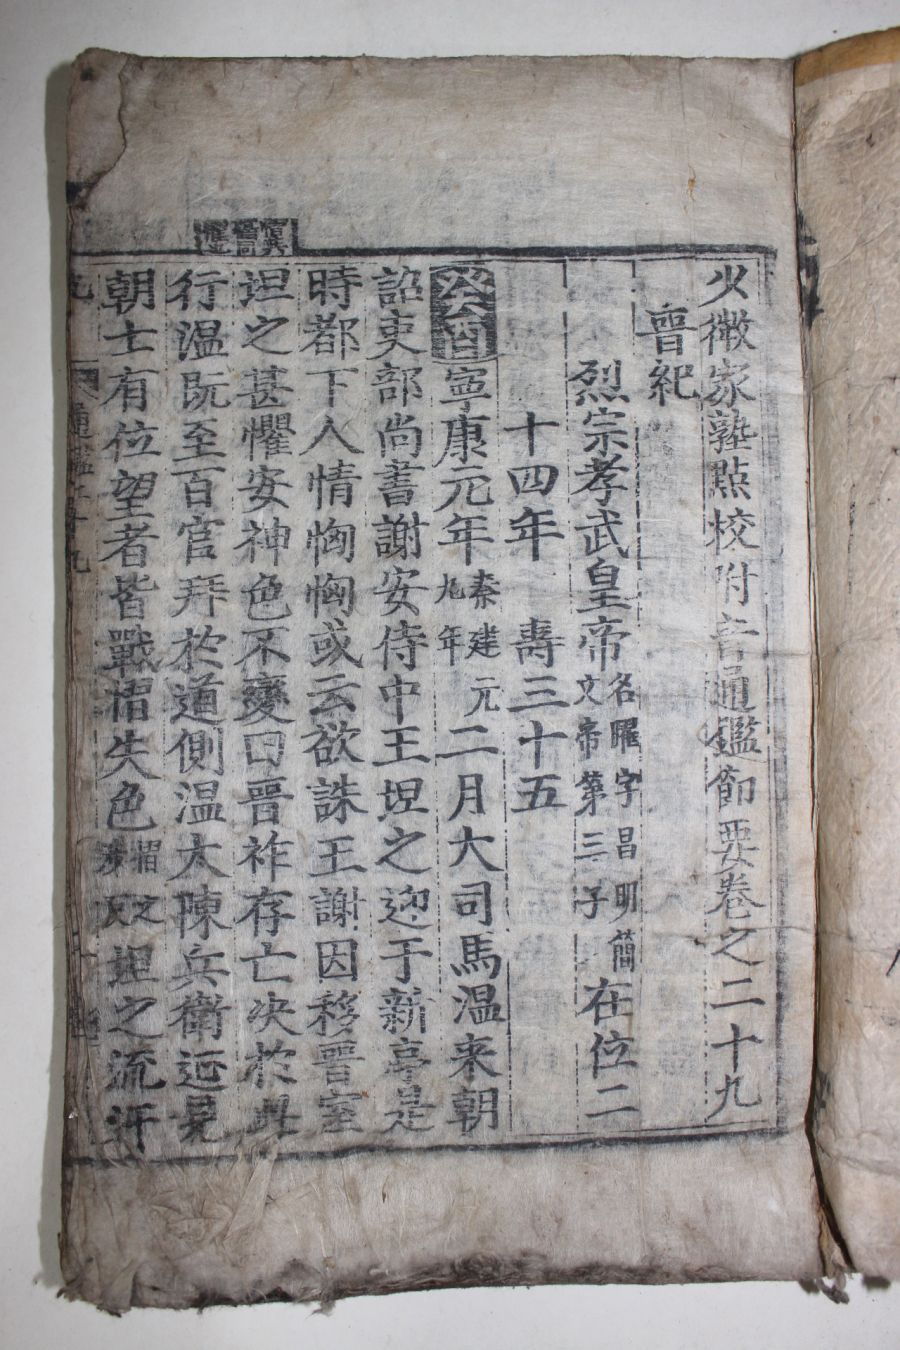 少微家塾點校附音通鑑節要卷之二十九
晉紀
烈宗孝武皇帝名曜字昌明簡文帝第三子在位二
十四年 壽三十五
癸酉寧康元年秦建元九年二月大司馬温来朝
詔吏部尚書謝安侍中王坦之迎于新亭是
時都下人情恟恟或云欲誅王謝因移晉室
坦之甚懼安神色不變曰晉祚存亡决於此
行温既至百官拜於道側温大陳兵衛延見
朝士有位望者皆戰慴失色慴之涉反坦之流汗
通鑑二十九